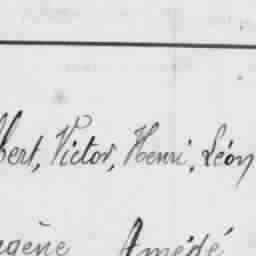 bert, Victor, Henri, Léon
gène Amédé